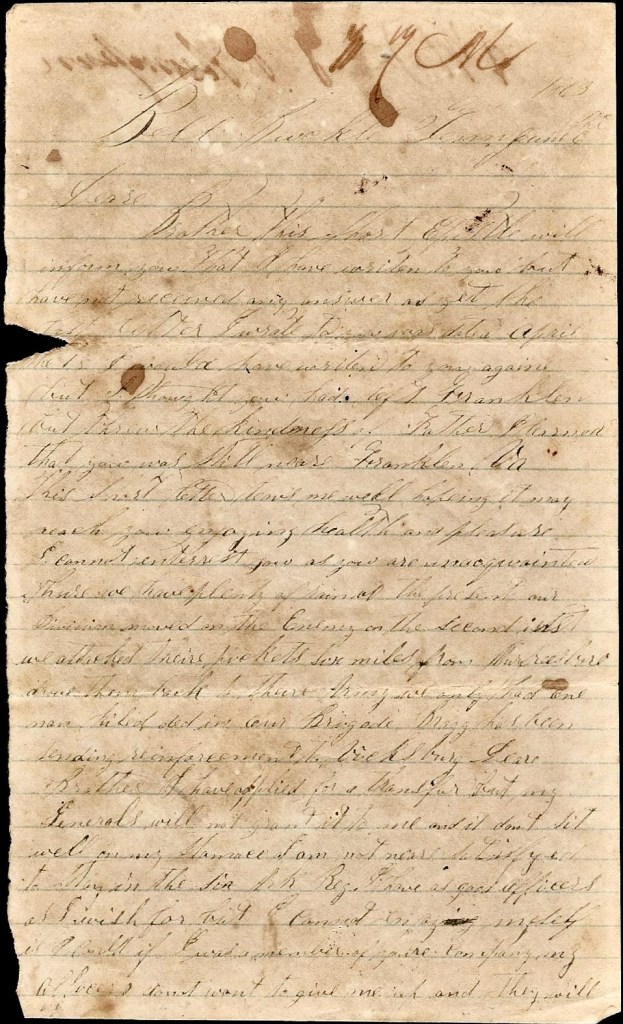 1863
Bell Buckle Tennessee
Deare
Brother this short Epistle will
inform you that I have writen to you but
have not received any answer as yet the
last letter I wrote to you was dated April
the I would have writen to you again
but I thought you had left Franklen
but threw the kindness of Father I larned
that you was still neare Franklen
This short letter leves me well hoping it may
reach you enjoying health and pleasure
I cannot enterest you as you are unacquainted
we have plenty of rain at the present our
Division moved on the Enemy on the second inst
we attacked theire pickets six miles from
drove them back to there Army we only had one
man killed ded in our Brigade Brag has been
sending reinforcements to Vicksburg Deare
Brother I have applied for a transfur but my
Generals will not grant it to me and it dont sit
well on my I am not neare satisfyed
to stay in the six Ark Reg I have as good officers
as I wish for but I cannot enjoy myself
as I could if I was a member of youre company my
officers dont want to give me up and they will